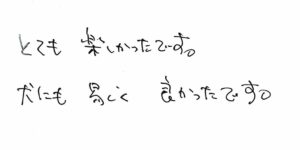 とても 楽しかったです。
犬にも 易しく 良かったです。